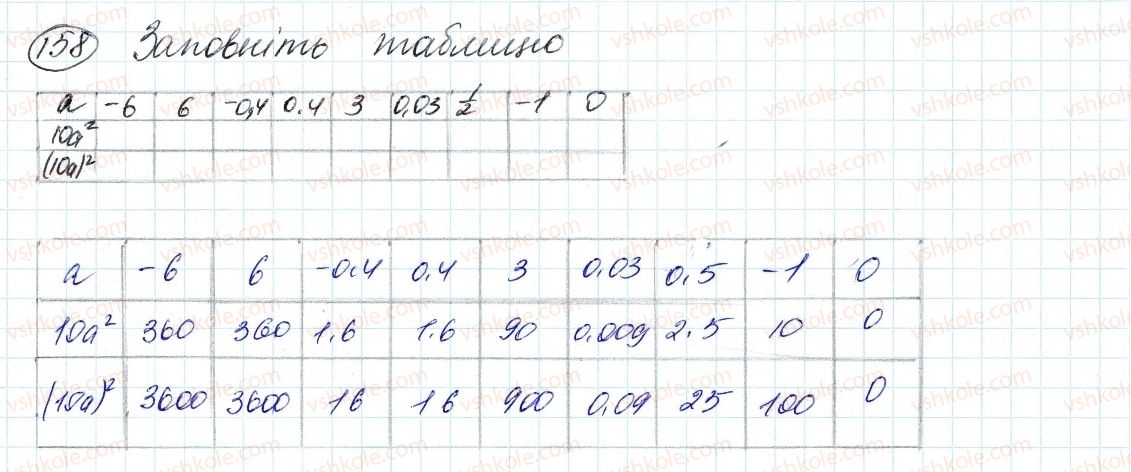 158 Заповніть таблицю
a -6 6 -0,4 0.4 3 0,03 1/2 -1 0
10a²
(10a)²
a -6 6 -0,4 0,4 3 0,03 0,5 -1 0
10a² 360 360 1,6 1.6 90 0,009 2,5 10 0
(10a)² 3600 3600 16 16 900 0,09 25 100 0